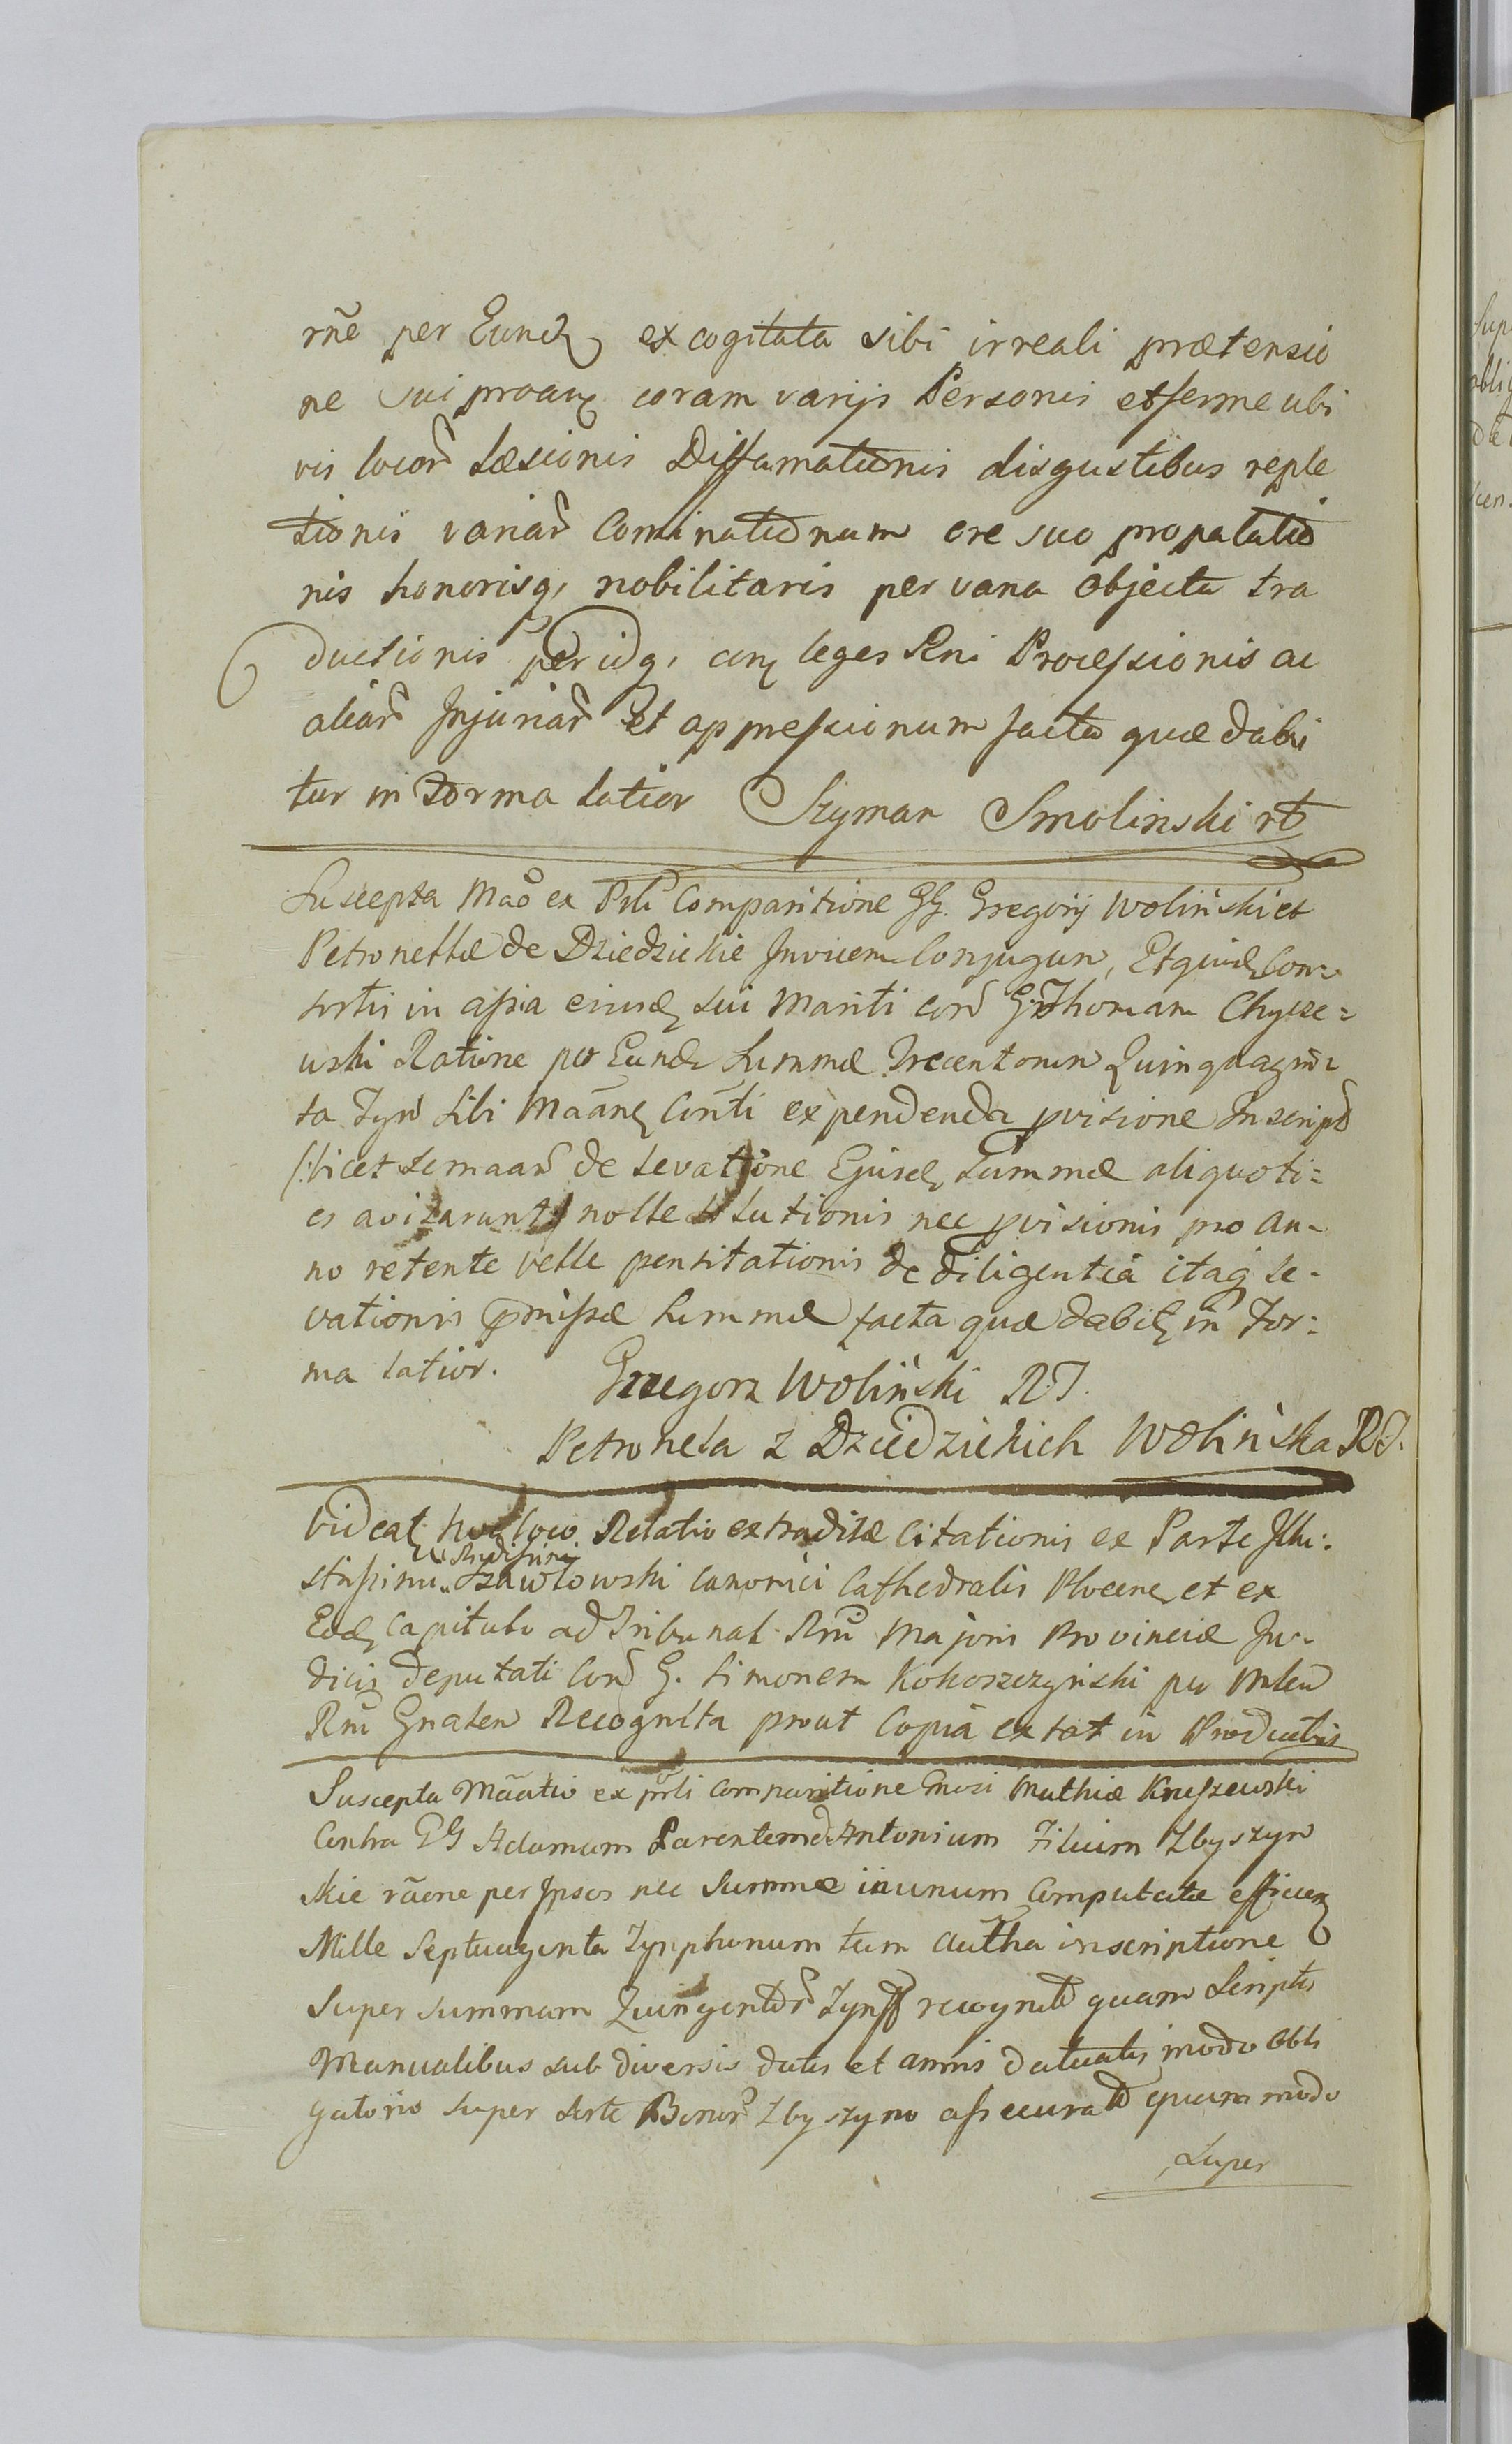 rñe per Eund excogitata sibi irreali prætensio
ne sui proavꝫ coram varijs Personis et ferme ubi
vis locor Læsionis Diffamationis disgustibus reple
tionis variar Cominationum ore suo propalatio
nis honorisq, nobilitaris per vana objecta tra
ductionis per idq, leges Rni Processionis ac
aliar Injuriar et appressionum facta quæ dabi
tur in Forma latior Szyman Smolinski rt
Suscepta Mão ex Prli Comparitione GG. Gregorij Woliński et
Petronellæ de Dziedzickie Invicem Conjugum, Et quid Con-
sortis in assia eiusd sui Mariti con G. Thomam Chycze=
wski Ratione per Eund Summæ Trecentorum Quinquagin=
ta Tynf Sibi Mãanꝫ Conti expendenda pvisione Inscript
(:licet semaar de levatione Ejusd Summæ aliquoti=
es avizarunt:) nolle Solutionis nec pvisionis pro an-
no retente velle pensitationis de diligentia itaq le-
vationis præmissæ Summæ facta quæ dabit in For=
ma latior. Grzegorz Woliński RT.
Petronela z Dziedzickich Wolińska RT.
Videat hoc loco Relatio extraditæ Citationis ex Parte Illu:
strissimi Szawłowski Canonici Cathedralis Plocen et ex
Eod Capitulo ad Tribunal Rni Majoris Provinciæ Ju-
dicis Deputati Con G. Simonem Kokoszczyński per Mlem
Rni Gnalem Recognita prout Copia extat in Productis
Suscepta Mãatio ex prli comparitione Gnosi Mathiæ Kryszewski
Contra GG Adamum Parentem et Antonium Filium Zbyszyn
skie rãone per Ipsos nec Summæ in unum Computatæ efficien
Mille Septuaginta Tynphonum tum autha inscriptione
Super summam Quingentor Tynff recognit quam Scriptis
Manualibus sub diversis datis et annis datuatis modo obli
gatorio super Sorte Bonor Zbyszyno assecurat quam modo
Super